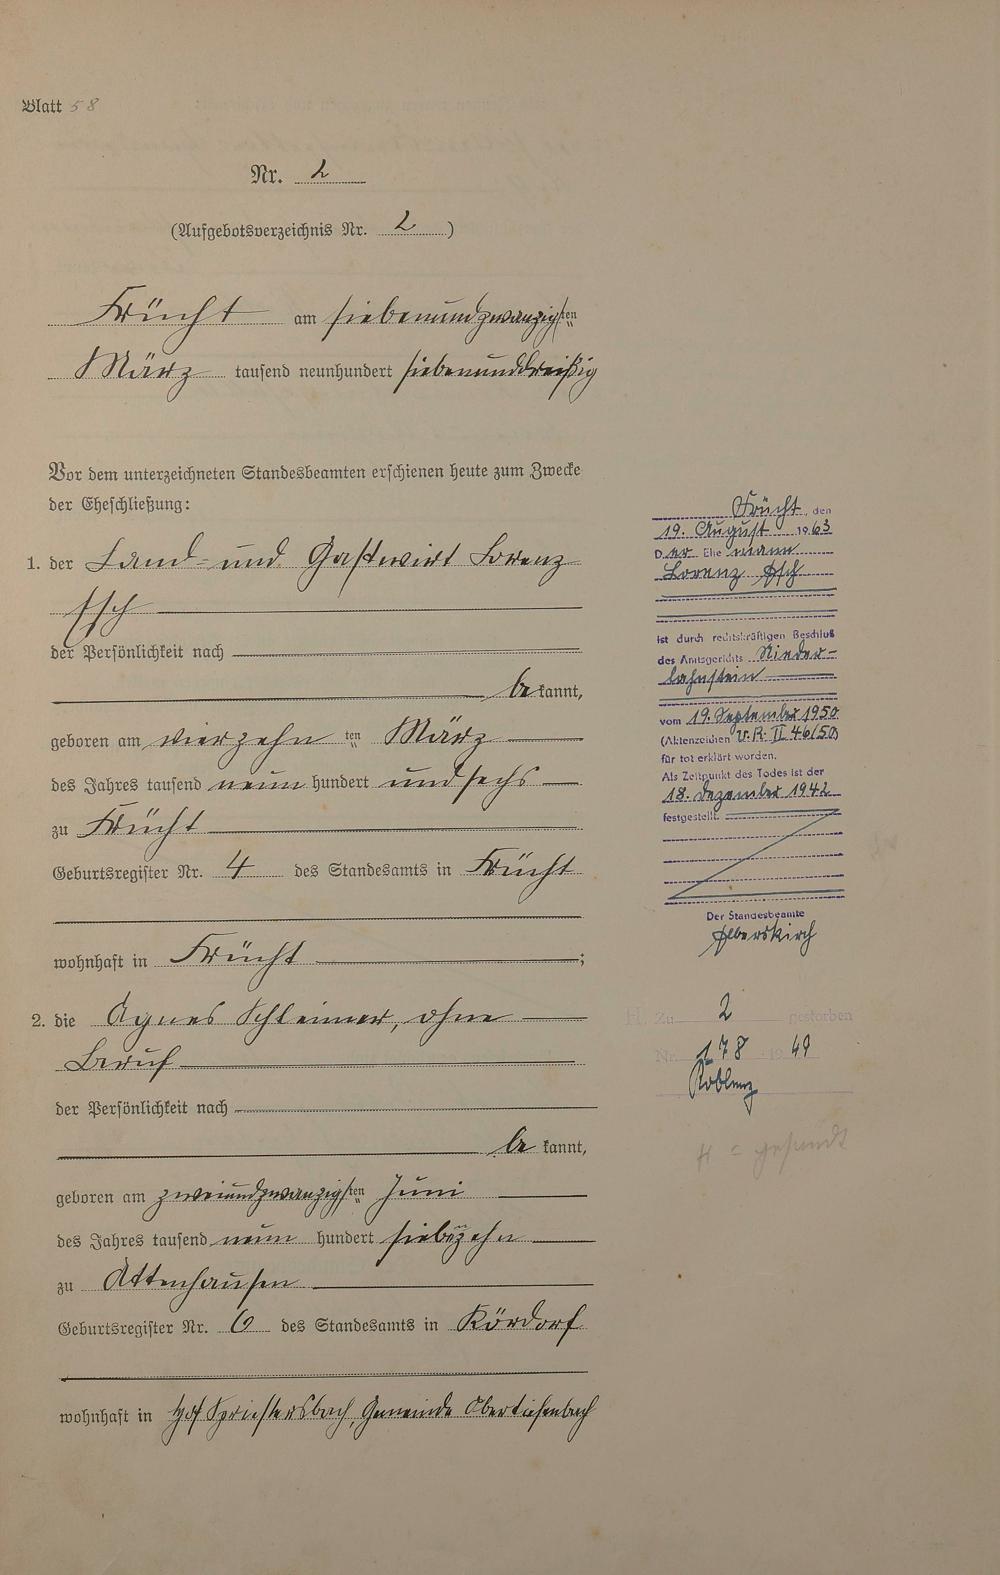 Blatt 58
Nr. 2
(Aufgebotsverzeichnis Nr. 2)
Frücht am siebenundzwanzigsten
März tausend neunhundert siebenunddreißig
Vor dem unterzeichneten Standesbeamten erschienen heute zum Zwecke
der Eheschließung:
1. der Land- und Gastwirt Lorenz
Esch
der Persönlichkeit nach
be kannt,
geboren am vierzehn ten März
des Jahres tausend neun hundert und sechs
zu Frücht
Geburtsregister Nr. 4 des Standesamts in Frücht
wohnhaft in Frücht ;
2. die Agnes Schleimer, ohne
Beruf
der Persönlichkeit nach
be kannt,
geboren am zweiundzwanzigsten Juni
des Jahres tausend neun hundert siebzehn
zu Attenhausen
Geburtsregister Nr. 6 des Standesamts in Kördorf
wohnhaft in Hof Spriestersbach, Gemeinde Obertiefenbach
Frücht, den
19. August 1963
Der Ehemann
Lorenz Esch
ist durch rechtskräftigen Beschluß
des Amtsgerichts Nieder-
lahnstein
vom 19. September 1950
(Aktenzeichen U.R. II 46/50)
für tot erklärt worden.
Als Zeitpunkt des Todes ist der
18. Dezember 1942
festgestellt.
Der Standesbeamte
Elberskirch
H. Zu 2 gestorben
Nr. 178 1949
Koblenz